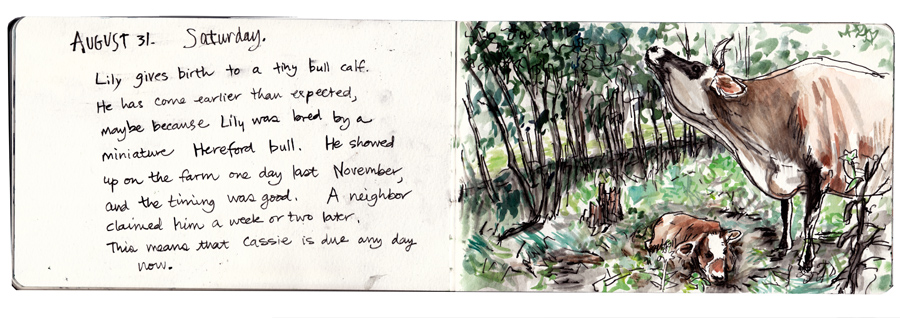 AUGUST 31. Saturday.
Lily gives birth to a tiny bull calf.
He has come earlier than expected,
maybe because Lily was bred by a
miniature Hereford bull. He showed
up on the farm one day last November,
and the timing was good. A neighbor
claimed him a week or two later.
This means that Cassie is due any day
now.